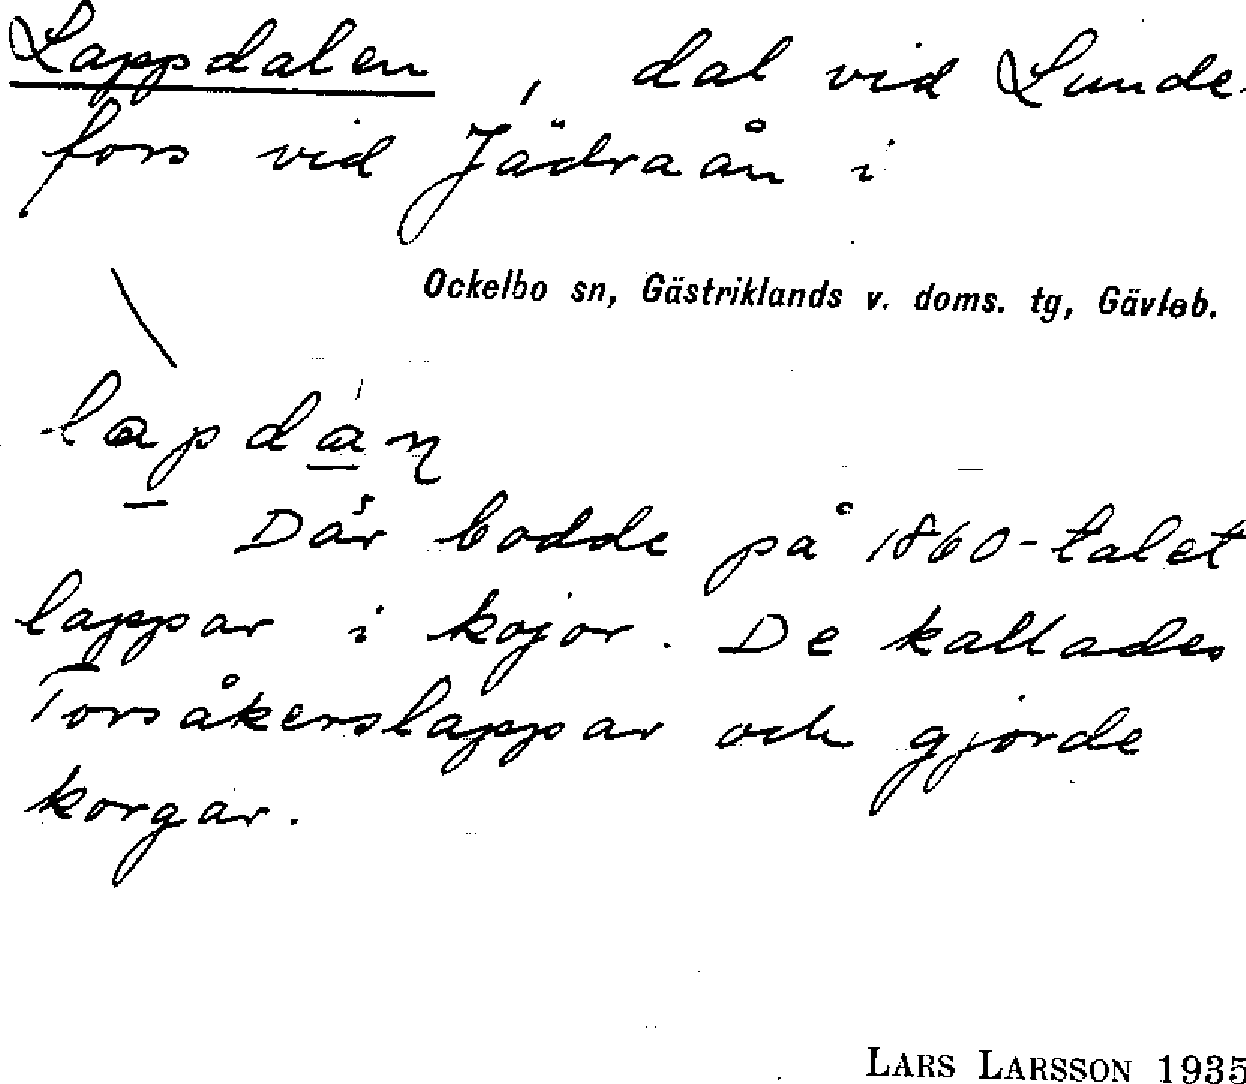 Lappdalen, dal vid Lunde-
fors vid Jädraån i
Ockelbo sn, Gästriklands v. doms. tg, Gävleb.
lapdán
Där bodde på 1860-talet
lappar i kojor. De kallades
Torsåkerslappar och gjorde
korgar.
LARS LARSSON 1935